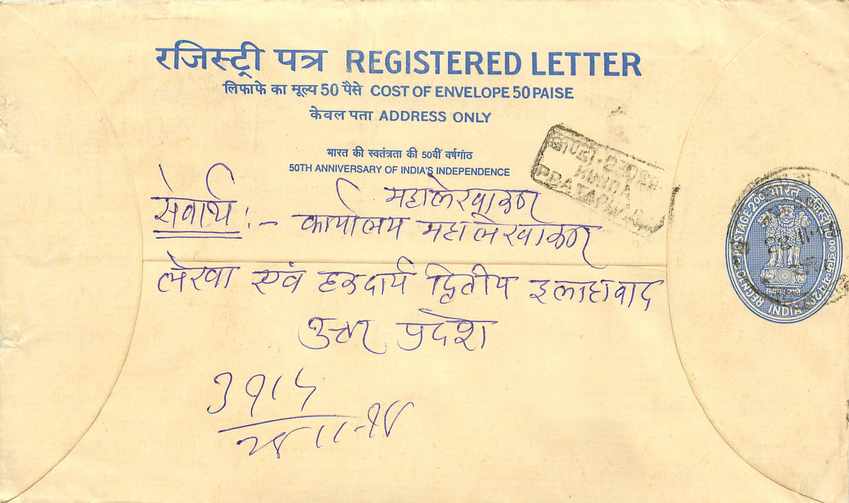 रजिस्ट्री पत्र REGISTERED LETTER
लिफाफे का मूल्य 50 पैसे COST OF ENVELOPE 50 PAISE
केवल पता ADDRESS ONLY
भारत की स्वतंत्रता की 50वीं वर्षगांठ
50TH ANNIVERSARY OF INDIA'S INDEPENDENCE
महालेखाकार
सेवार्थ :- कार्यालय महालेखाकार
लेखा एवं हकदारी द्वितीय इलाहाबाद
उत्तर प्रदेश
KUNDA
PRATAPGARH
भारत
INDIA